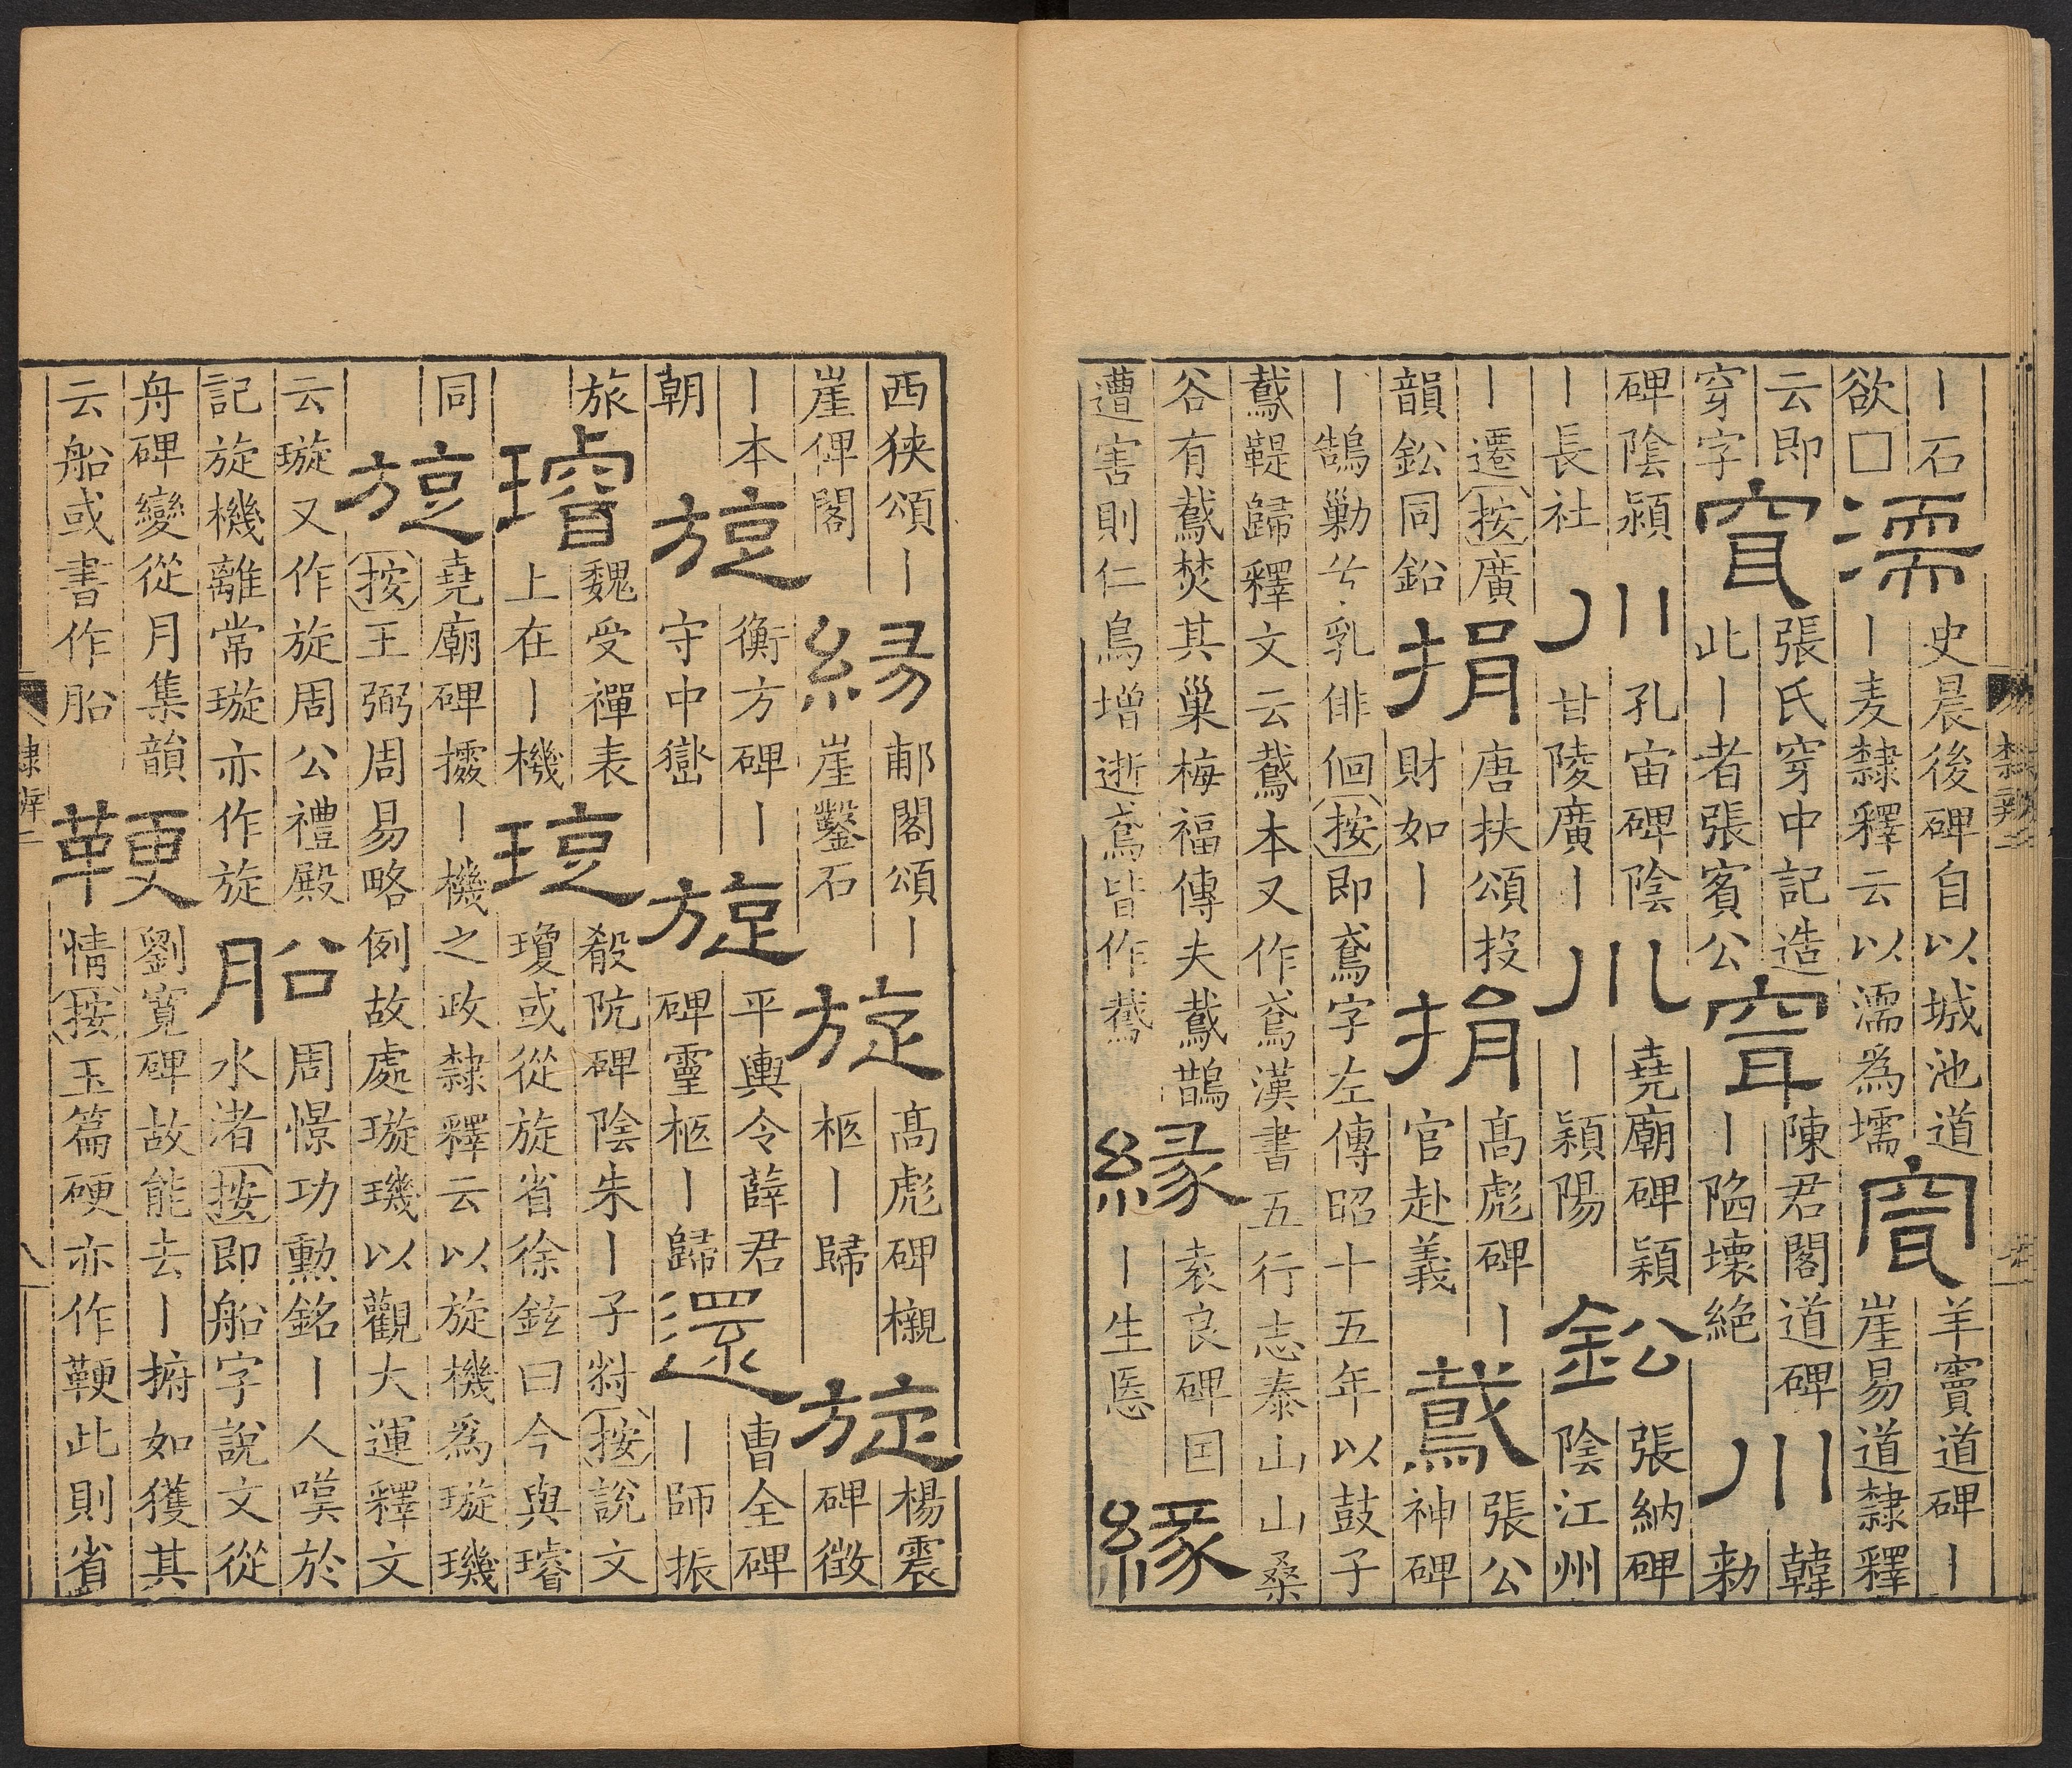 隸辨二
丨石欲□濡史晨後碑自以城池道丨麦隸釋云以濡爲壖穿羊竇道碑丨崖易道隸釋
云即穿字穿張氏穿中記造此丨者張賓公穿陳君閣道碑丨陷壞絶川韓勑
碑陰潁丨長社川孔宙碑陰甘陵廣丨川堯廟碑潁丨潁陽鈆張納碑陰江州
丨遷按廣韻鈆同鉛捐唐扶頌投財如丨捐高彪碑丨官赴義䳒張公神碑
丨鵠勦兮乳俳佪按即鳶字左傳昭十五年以鼓子䳒鞮歸釋文云䳒本又作鳶漢書五行志泰山山桑
谷有䳒焚其巢梅福傳夫䳒鵲遭害則仁鳥增逝鳶皆作䳒緣袁良碑囯丨生緣
西狹頌丨崖俾閣緣郙閣頌丨崖鑿石旋高彪碑櫬柩丨歸旋楊震碑徵
丨本朝旋衡方碑丨守中嶽旋平輿令薛君碑靈柩丨歸還曹全碑丨師振
旅璿魏受禪表上在丨機琁殽阬碑陰朱丨子按說文瓊或從旋省徐鉉曰今與璿
同旋堯廟碑據丨機之政隸釋云以旋機爲璇璣按王弼周易略例故處璇璣以觀大運釋文
云璇又作旋周公禮殿記旋機離常璇亦作旋船周憬功勳銘丨人嘆於水渚按即船字說文從
舟碑變從月集韻云船或書作舩鞭劉寬碑故能去丨捬如獲其情按玉篇硬亦作鞕此則省
隸辨二
八